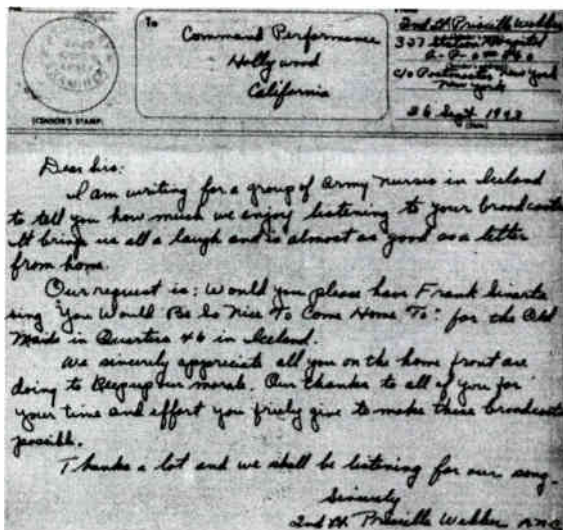 To
Command Performance
Hollywood
California
(CENSOR'S STAMP)
2nd Lt. Priscilla
327 Station Hospital
A-P-O
c/o Postmaster New York
New York
26 Sept 194
(Date)
Dear Sirs:
I am writing for a group of Army nurses in Iceland
to tell you how much we enjoy listening to your broadcasts
It brings us all a laugh and is almost as good as a letter
from home.
Our request is: Would you please have Frank Sinarta
sing "You Would Be So Nice To Come Home To" for the Old
Maids in Quarters 46 in Iceland.
We sincerely appreciate all you on the home front are
doing to keep up our morale. Our thanks to all of you for
your time and effort you freely give to make these broadcasts
possible.
Thanks a lot and we shall be listening for our song.
Sincerely
2nd Lt. Priscilla